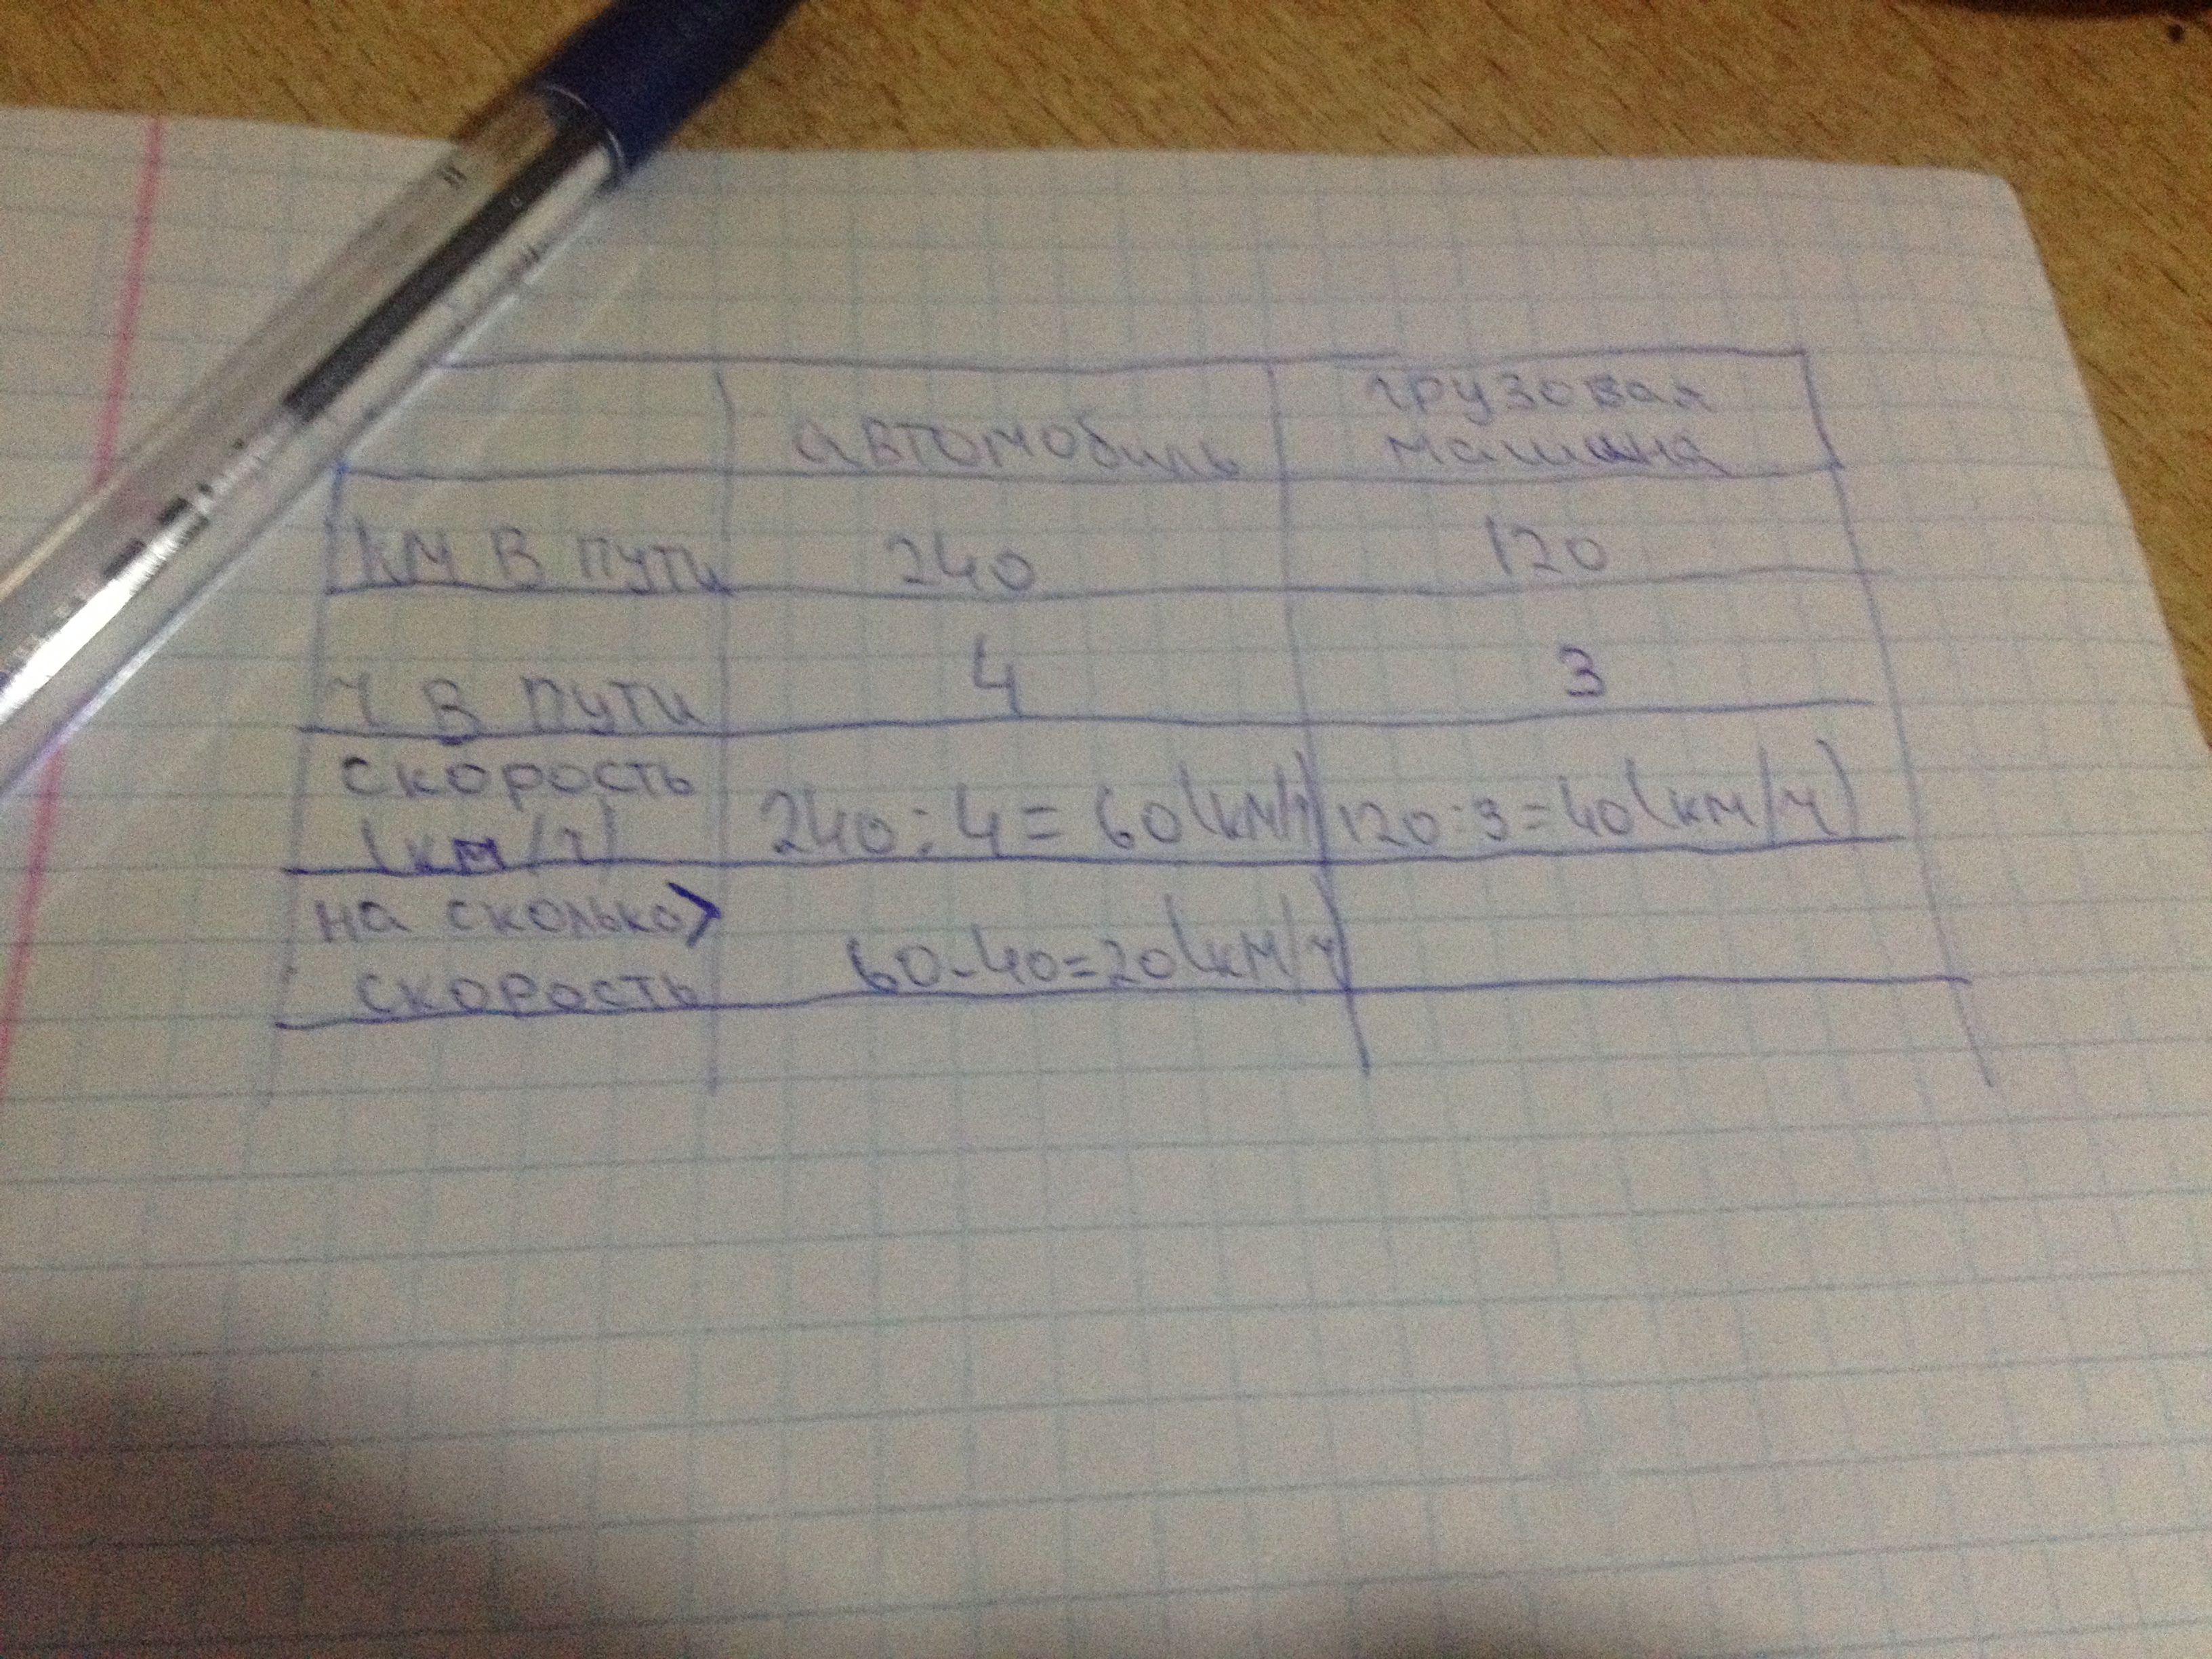 автомобиль грузовая
машина
км в пути 240 120
ч в пути 4 3
скорость
(км/ч) 240:4=60(км/ч) 120:3=40(км/ч)
на сколько>
скорость 60-40=20(км/ч